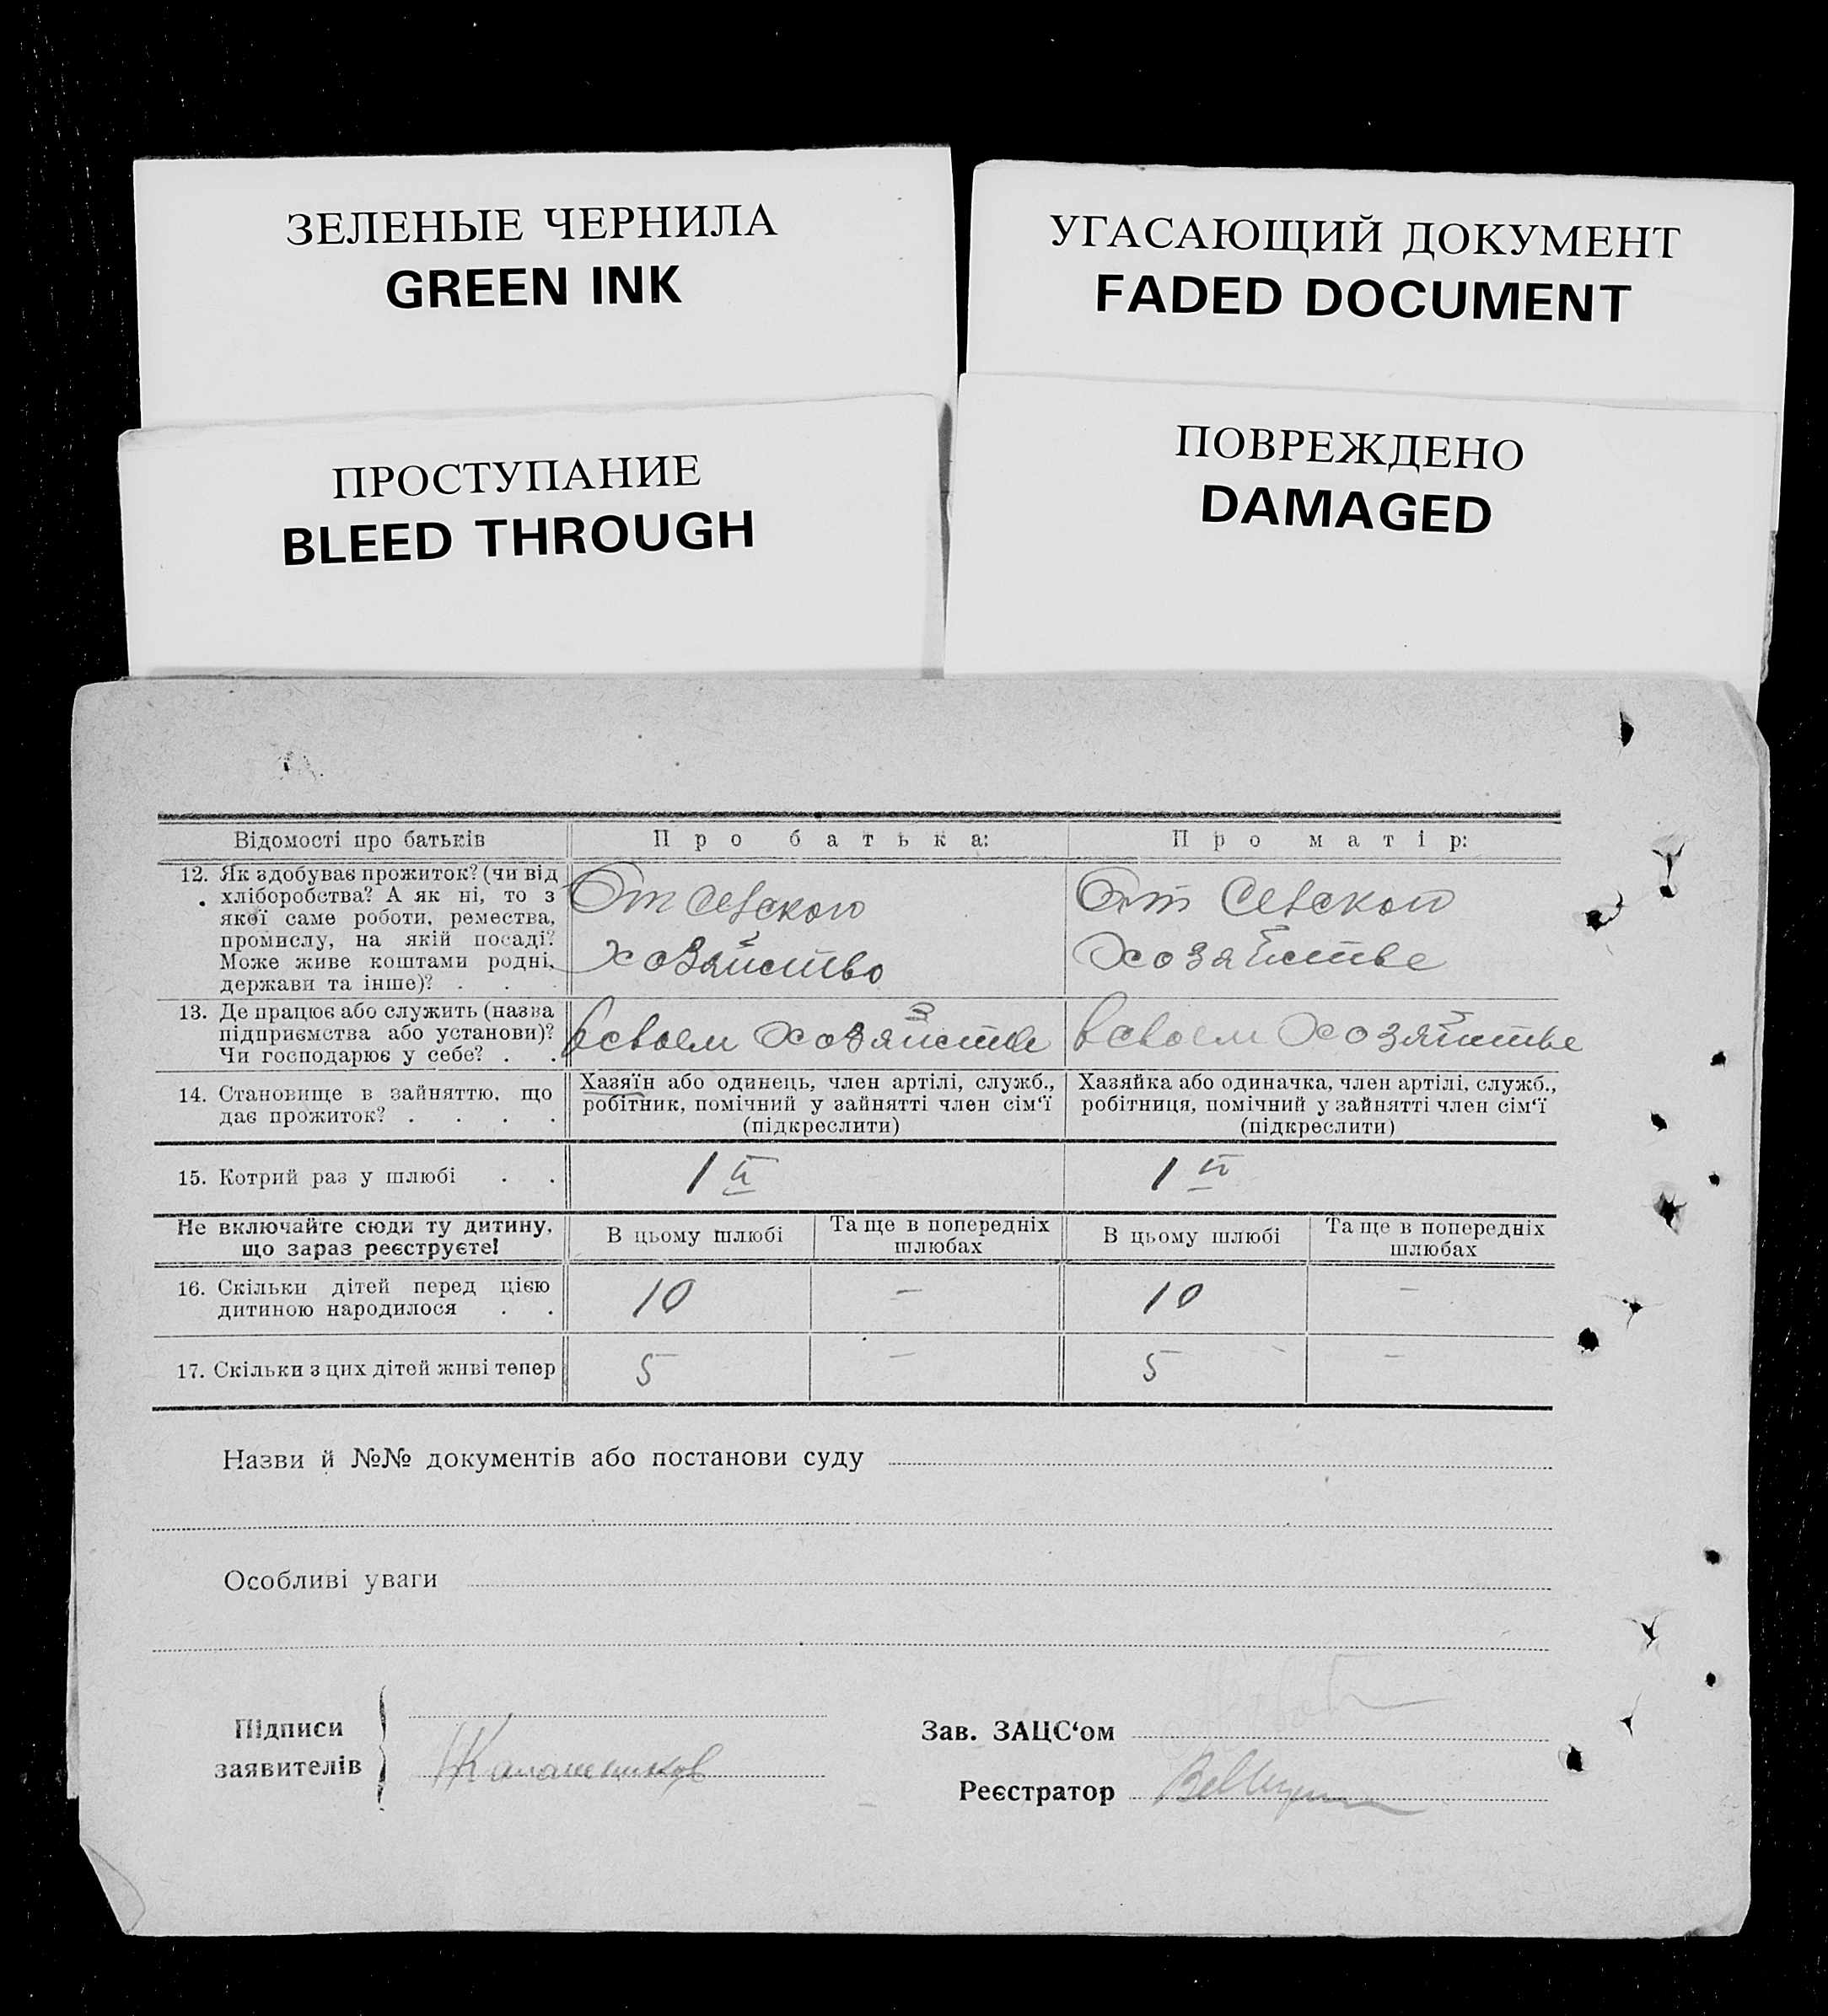 ЗЕЛЕНЫЕ ЧЕРНИЛА
GREEN INK
УГАСАЮЩИЙ ДОКУМЕНТ
FADED DOCUMENT
ПРОСТУПАНИЕ
BLEED THROUGH
ПОВРЕЖДЕНО
DAMAGED
Відомості про батьків
Про батька:
Про матір:
12. Як здобуває прожиток? (чи від
хліборобства? А як ні, то з
якої саме роботи, ремества,
промислу, на якій посаді?
Може живе коштами родні,
держави та інше)? . .
От сельского
хозяйство
От сельского
хозяйстве
13. Де працює або служить (назва
підприємства або установи)?
Чи господарює у себе? . .
в своем хозяйстве
в своем хозяйстве
14. Становище в зайняттю, що
дає прожиток? . . . .
Хазяїн або одинець, член артілі, служб.,
робітник, помічний у зайнятті член сім‘ї
(підкреслити)
Хазяйка або одиначка, член артілі, служб.,
робітниця, помічний у зайнятті член сім‘ї
(підкреслити)
15. Котрий раз у шлюбі . .
1й
1й
Не включайте сюди ту дитину,
що зараз реєструєте!
В цьому шлюбі
Та ще в попередніх
шлюбах
В цьому шлюбі
Та ще в попередніх
шлюбах
16. Скільки дітей перед цією
дитиною народилося . .
10
—
10
—
17. Скільки з цих дітей живі тепер
5
—
5
—
Назви й №№ документів або постанови суду
Особливі уваги
Підписи
заявителів
Калашников
Зав. ЗАЦС‘ом
Реєстратор